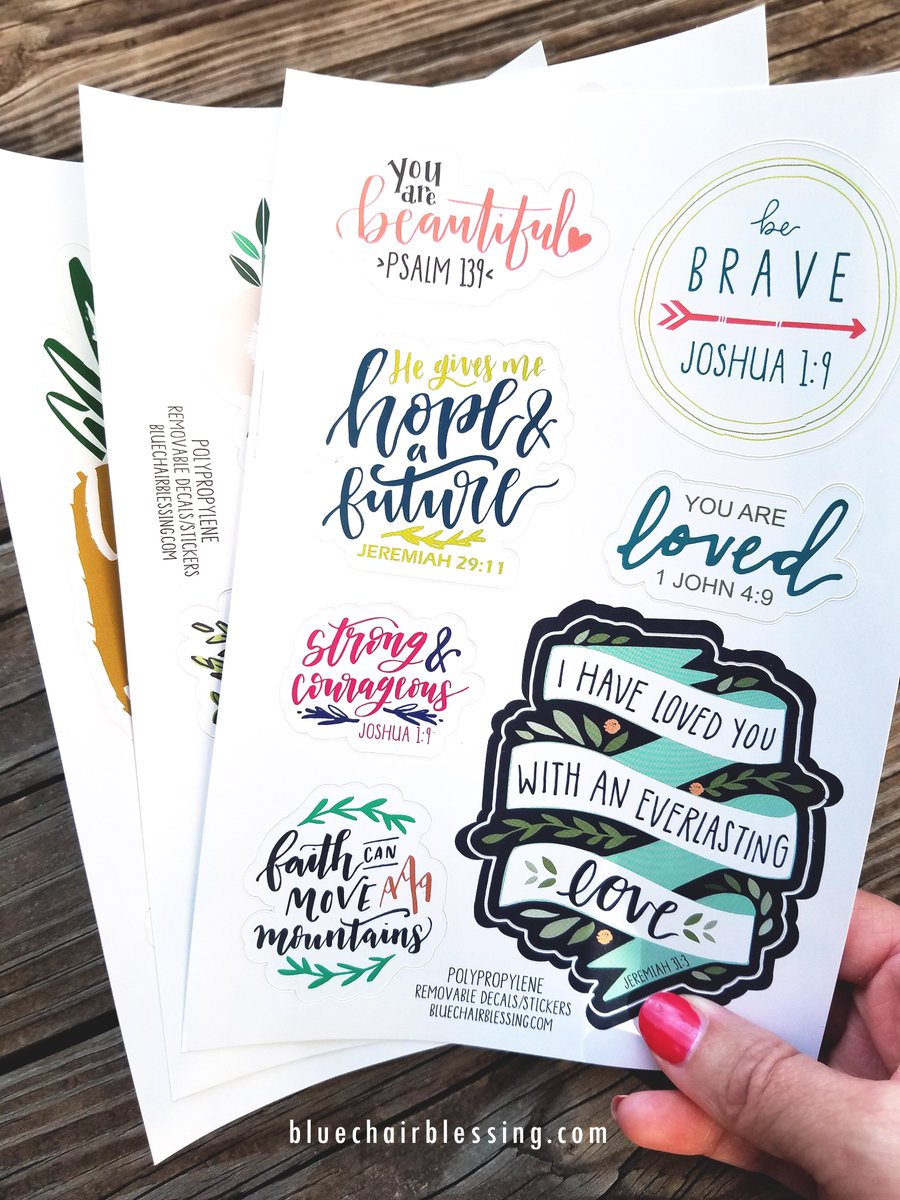 you
are
beautiful
>PSALM 139<
be
BRAVE
JOSHUA 1:9
He gives me
hope &
a
future
JEREMIAH 29:11
YOU ARE
loved
1 JOHN 4:9
strong &
courageous
JOSHUA 1:9
I HAVE LOVED YOU
WITH AN EVERLASTING
love
JEREMIAH 31:3
faith CAN
MOVE
mountains
POLYPROPYLENE
REMOVABLE DECALS/STICKERS
BLUECHAIRBLESSING.COM
POLYPROPYLENE
REMOVABLE DECALS/STICKERS
BLUECHAIRBLESSING.COM
bluechairblessing.com